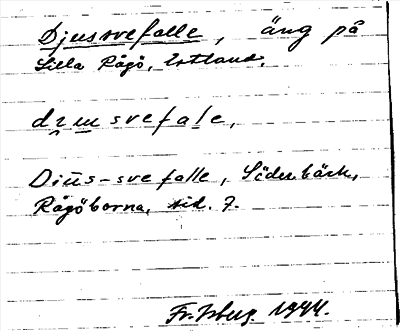 Djussvefalle, äng på
Lilla Rågö, Estland.
dɪ̯ɯsvefale,
Diūs-sve falle, Söderbäck,
Rågöborna, sid. 7.
1944.